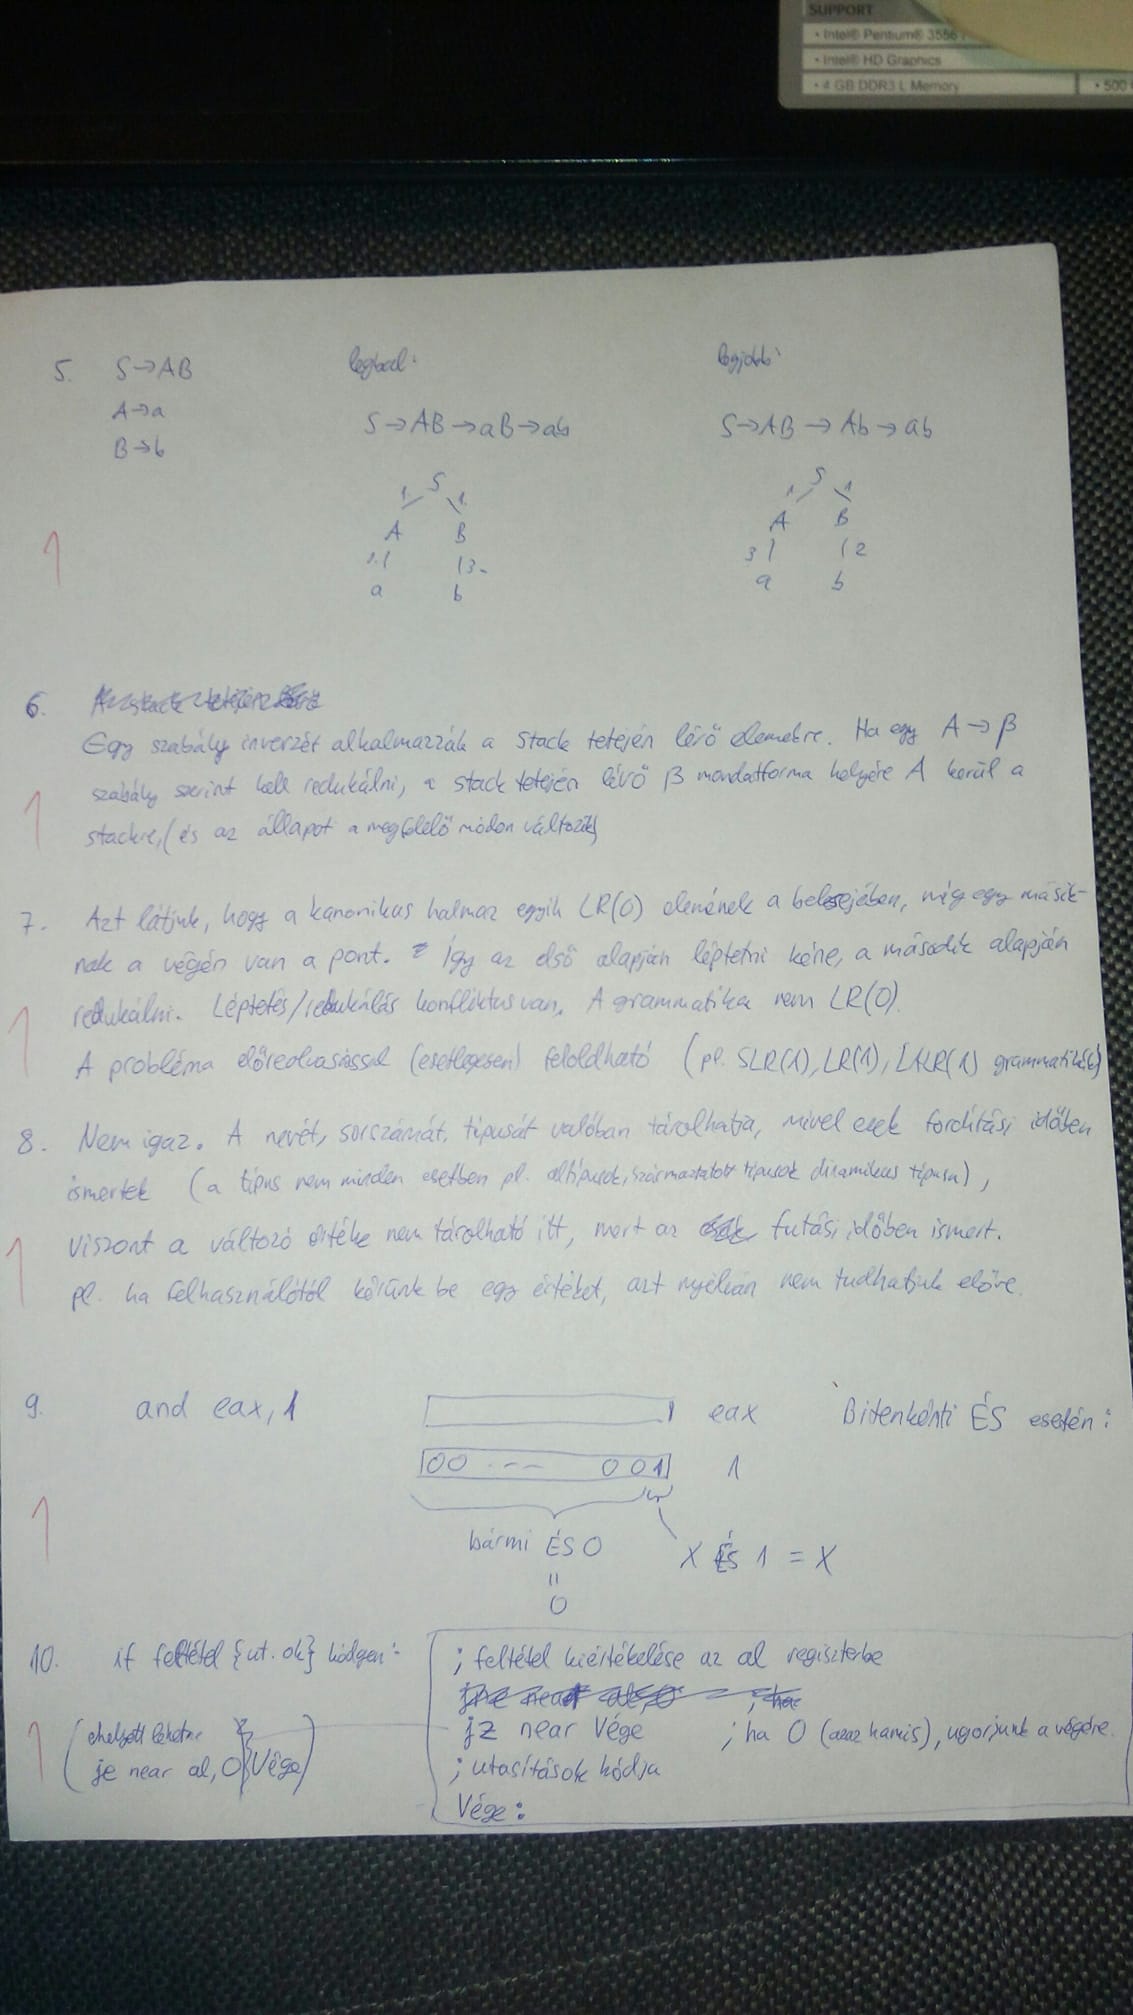 SUPPORT
• Intel® Pentium® 3556
• Intel® HD Graphics
• 4 GB DDR3 L Memory • 500
5. S→AB legbal: legjobb:
A→a
B→b
S→AB→aB→ab S→AB→Ab→ab
S S
1. 1. 1 1
A B A B
2. 3. 3 2
a b a b
1
6.
Egy szabály inverzét alkalmazzák a stack tetején lévő elemekre. Ha egy A→β
szabály szerint kell redukálni, a stack tetején lévő β mondatforma helyére A kerül a
stackre, (és az állapot a megfelelő módon változik)
1
7. Azt látjuk, hogy a kanonikus halmaz egyik LR(0) elemének a belsejében, még egy másik-
nak a végén van a pont. Így az első alapján léptetni kéne, a második alapján
redukálni. Léptetés/redukálás konfliktus van. A grammatika nem LR(0).
A probléma előreolvasással (esetlegesen) feloldható (pl. SLR(1), LR(1), LALR(1) grammatikák)
1
8. Nem igaz. A nevét, sorszámát, típusát valóban tárolhatja, mivel ezek fordítási időben
ismertek (a típus nem minden esetben pl. altípusok, származtatott típusok dinamikus típusa),
viszont a változó értéke nem tárolható itt, mert az futási időben ismert.
pl. ha felhasználótól kérünk be egy értéket, azt nyilván nem tudhatjuk előre.
1
9. and eax, 1 eax Bitenkénti ÉS esetén:
00 --- 001 1
1
bármi ÉS 0 X ÉS 1 = X
=
0
10. if feltétel {ut. ok} kódgen: ; feltétel kiértékelése az al regiszterbe
jz near Vége ; ha 0 (azaz hamis), ugorjunk a végére.
(ehelyett lehetne
je near al, 0 Vége) ; utasítások kódja
Vége:
1